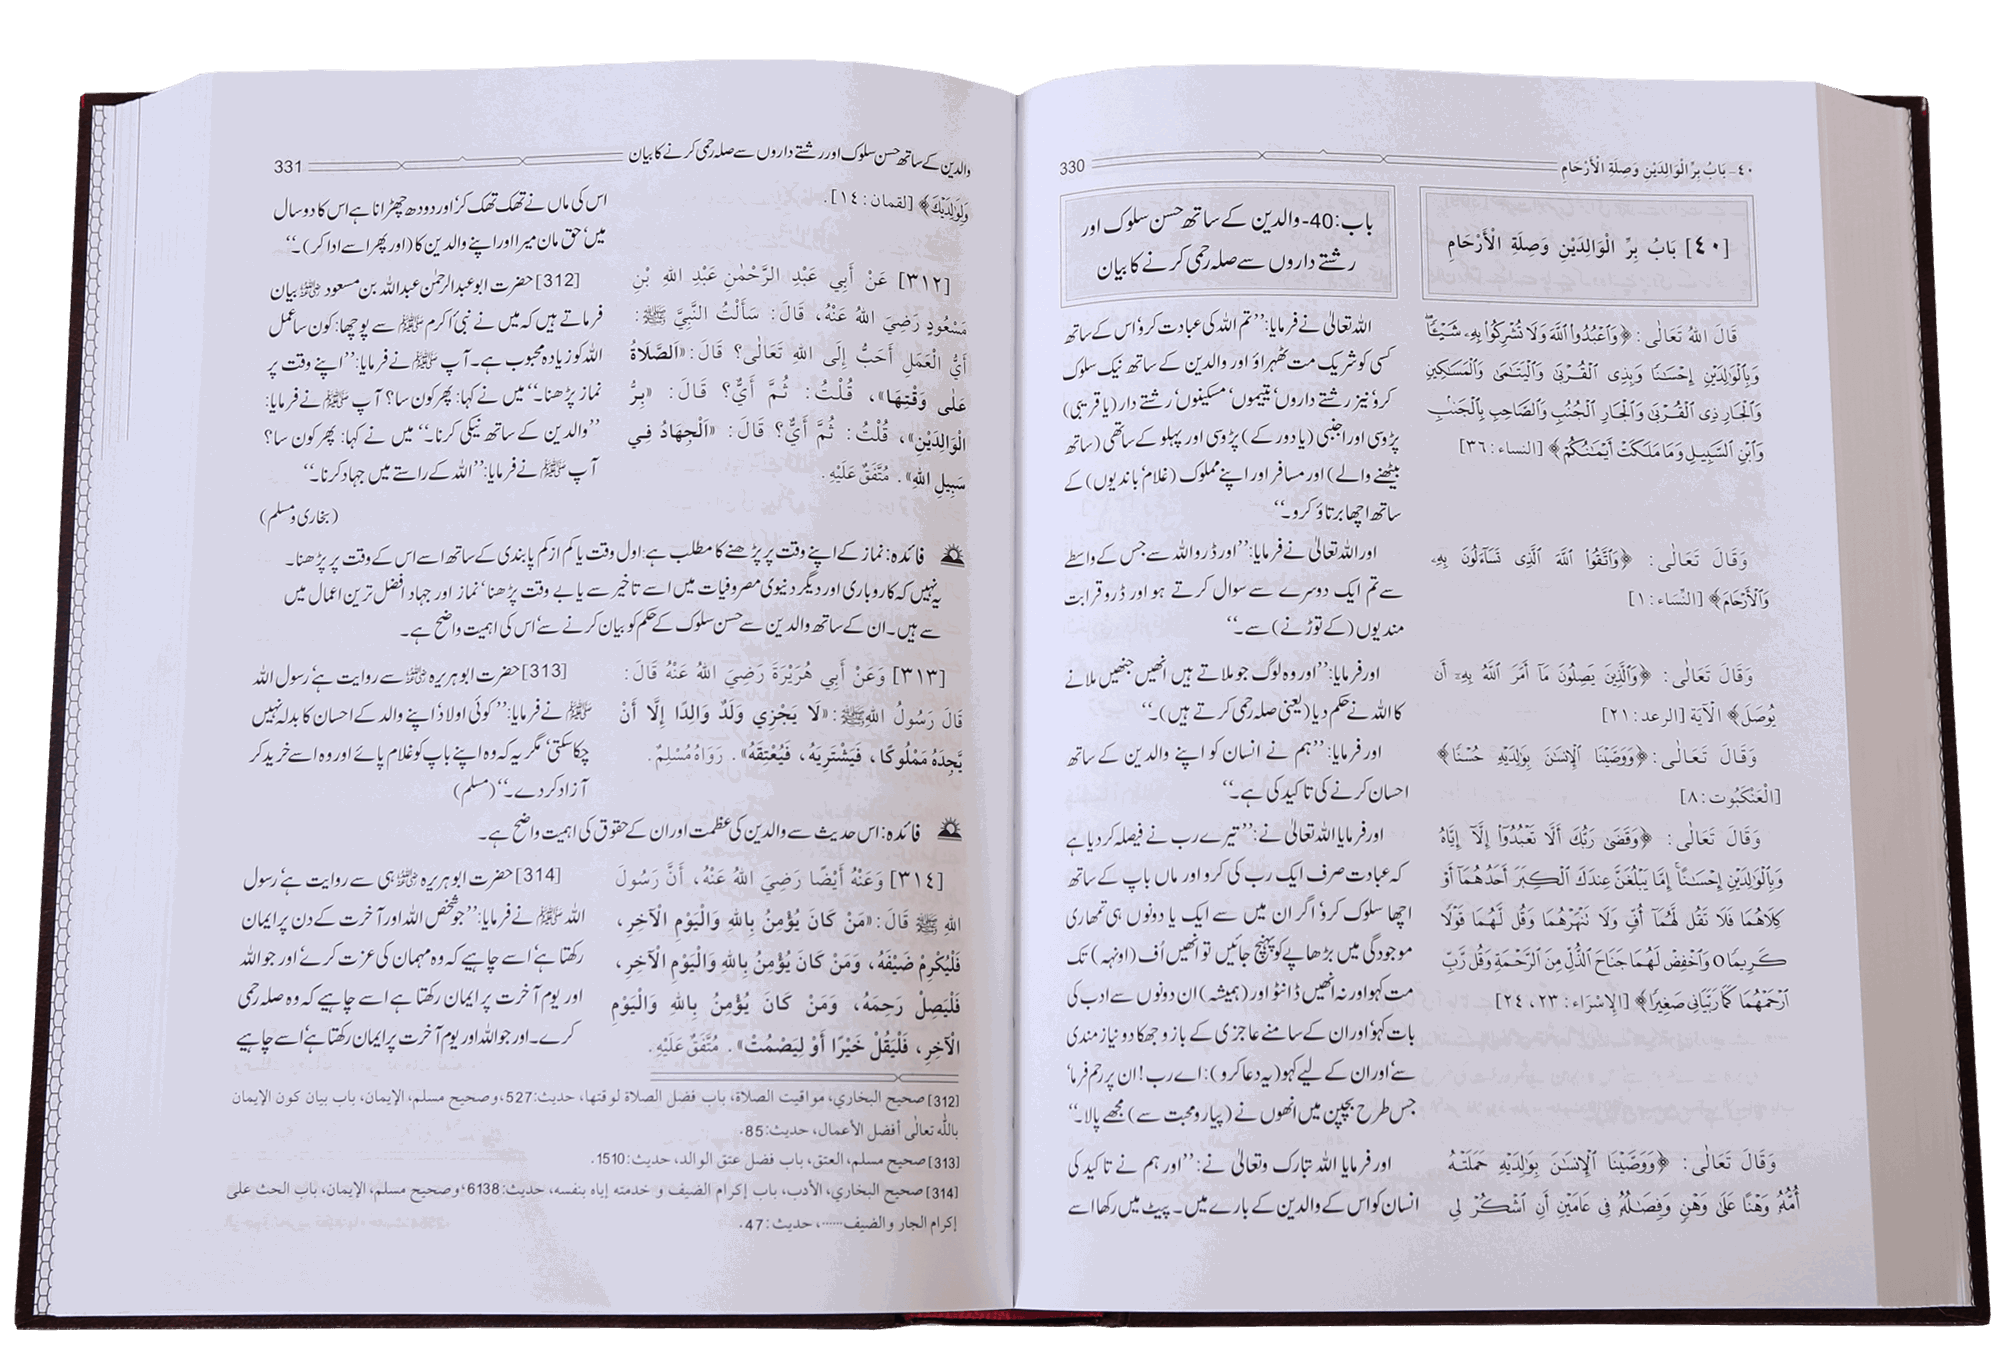 ٤٠- بَابُ بِرِّ الْوَالِدَيْنِ وَصِلَةِ الْأَرْحَامِ
330
[٤٠] بَابُ بِرِّ الْوَالِدَيْنِ وَصِلَةِ الْأَرْحَامِ
قَالَ اللهُ تَعَالٰى: ﴿وَٱعْبُدُوا۟ ٱللَّهَ وَلَا تُشْرِكُوا۟ بِهِۦ شَيْـًٔا ۖ
وَبِٱلْوَٰلِدَيْنِ إِحْسَـٰنًا وَبِذِى ٱلْقُرْبَىٰ وَٱلْيَتَـٰمَىٰ وَٱلْمَسَـٰكِينِ
وَٱلْجَارِ ذِى ٱلْقُرْبَىٰ وَٱلْجَارِ ٱلْجُنُبِ وَٱلصَّاحِبِ بِٱلْجَنۢبِ
وَٱبْنِ ٱلسَّبِيلِ وَمَا مَلَكَتْ أَيْمَـٰنُكُمْ﴾ [النساء: ٣٦]
وَقَالَ تَعَالٰى: ﴿وَٱتَّقُوا۟ ٱللَّهَ ٱلَّذِى تَسَآءَلُونَ بِهِۦ
وَٱلْأَرْحَامَ﴾ [النِّسَاء: ١]
وَقَالَ تَعَالٰى: ﴿وَٱلَّذِينَ يَصِلُونَ مَآ أَمَرَ ٱللَّهُ بِهِۦٓ أَن
يُوصَلَ﴾ الْآيَة [الرعد: ٢١]
وَقَالَ تَعَالٰى: ﴿وَوَصَّيْنَا ٱلْإِنسَـٰنَ بِوَٰلِدَيْهِ حُسْنًا﴾
[الْعَنْكَبُوت: ٨]
وَقَالَ تَعَالٰى: ﴿وَقَضَىٰ رَبُّكَ أَلَّا تَعْبُدُوٓا۟ إِلَّآ إِيَّاهُ
وَبِٱلْوَٰلِدَيْنِ إِحْسَـٰنًا ۚ إِمَّا يَبْلُغَنَّ عِندَكَ ٱلْكِبَرَ أَحَدُهُمَآ أَوْ
كِلَاهُمَا فَلَا تَقُل لَّهُمَآ أُفٍّ وَلَا تَنْهَرْهُمَا وَقُل لَّهُمَا قَوْلًا
كَرِيمًا ٥ وَٱخْفِضْ لَهُمَا جَنَاحَ ٱلذُّلِّ مِنَ ٱلرَّحْمَةِ وَقُل رَّبِّ
ٱرْحَمْهُمَا كَمَا رَبَّيَانِى صَغِيرًا﴾ [الإِسْرَاء: ٢٣، ٢٤]
وَقَالَ تَعَالٰى: ﴿وَوَصَّيْنَا ٱلْإِنسَـٰنَ بِوَٰلِدَيْهِ حَمَلَتْهُ
أُمُّهُۥ وَهْنًا عَلَىٰ وَهْنٍ وَفِصَـٰلُهُۥ فِى عَامَيْنِ أَنِ ٱشْكُرْ لِى
باب:40- والدین کے ساتھ حسن سلوک اور
رشتے داروں سے صلہ رحمی کرنے کا بیان
اللہ تعالیٰ نے فرمایا: ’’تم اللہ کی عبادت کرو‘ اس کے ساتھ
کسی کو شریک مت ٹھہراؤ اور والدین کے ساتھ نیک سلوک
کرو‘ نیز رشتے داروں‘ یتیموں‘ مسکینوں‘ رشتے دار (یا قریبی)
پڑوسی اور اجنبی (یا دور کے) پڑوسی اور پہلو کے ساتھی (ساتھ
بیٹھنے والے) اور مسافر اور اپنے مملوک (غلام‘ باندیوں) کے
ساتھ اچھا برتاؤ کرو۔‘‘
اور اللہ تعالیٰ نے فرمایا: ’’اور ڈرو اللہ سے جس کے واسطے
سے تم ایک دوسرے سے سوال کرتے ہو اور ڈرو قرابت
مندیوں (کے توڑنے) سے۔‘‘
اور فرمایا: ’’اور وہ لوگ جو ملاتے ہیں انھیں جنھیں ملانے
کا اللہ نے حکم دیا (یعنی صلہ رحمی کرتے ہیں)۔‘‘
اور فرمایا: ’’ہم نے انسان کو اپنے والدین کے ساتھ
احسان کرنے کی تاکید کی ہے۔‘‘
اور فرمایا اللہ تعالیٰ نے: ’’تیرے رب نے فیصلہ کر دیا ہے
کہ عبادت صرف ایک رب کی کرو اور ماں باپ کے ساتھ
اچھا سلوک کرو‘ اگر ان میں سے ایک یا دونوں ہی تمھاری
موجودگی میں بڑھاپے کو پہنچ جائیں تو انھیں اُف (اونہہ) تک
مت کہو اور نہ انھیں ڈانٹو اور (ہمیشہ) ان دونوں سے ادب کی
بات کہو‘ اور ان کے سامنے عاجزی کے بازو جھکا دو نیاز مندی
سے‘ اور ان کے لیے کہو (یہ دعا کرو): اے رب! ان پر رحم فرما‘
جس طرح بچپن میں انھوں نے (پیار و محبت سے) مجھے پالا۔‘‘
اور فرمایا اللہ تبارک وتعالیٰ نے: ’’اور ہم نے تاکید کی
انسان کو اس کے والدین کے بارے میں۔ پیٹ میں رکھا اسے
والدین کے ساتھ حسن سلوک اور رشتے داروں سے صلہ رحمی کرنے کا بیان
331
وَلِوَٰلِدَيْكَ﴾ [لقمان: ١٤].
[٣١٢] عَنْ أَبِي عَبْدِ الرَّحْمٰنِ عَبْدِ اللهِ بْنِ
مَسْعُودٍ رَضِيَ اللهُ عَنْهُ، قَالَ: سَأَلْتُ النَّبِيَّ ﷺ:
أَيُّ الْعَمَلِ أَحَبُّ إِلَى اللهِ تَعَالٰى؟ قَالَ: «اَلصَّلَاةُ
عَلٰى وَقْتِهَا»، قُلْتُ: ثُمَّ أَيٌّ؟ قَالَ: «بِرُّ
الْوَالِدَيْنِ»، قُلْتُ: ثُمَّ أَيٌّ؟ قَالَ: «اَلْجِهَادُ فِي
سَبِيلِ اللهِ». مُتَّفَقٌ عَلَيْهِ.
اس کی ماں نے تھک تھک کر‘ اور دودھ چھڑانا ہے اس کا دو سال
میں‘ حق مان میرا اور اپنے والدین کا (اور پھر اسے ادا کر)۔‘‘
[312] حضرت ابوعبدالرحمٰن عبداللہ بن مسعود ؓ بیان
فرماتے ہیں کہ میں نے نبیٔ اکرم ﷺ سے پوچھا: کون سا عمل
اللہ کو زیادہ محبوب ہے۔ آپ ﷺ نے فرمایا: ’’اپنے وقت پر
نماز پڑھنا۔‘‘ میں نے کہا: پھر کون سا؟ آپ ﷺ نے فرمایا:
’’والدین کے ساتھ نیکی کرنا۔‘‘ میں نے کہا: پھر کون سا؟
آپ ﷺ نے فرمایا: ’’اللہ کے راستے میں جہاد کرنا۔‘‘
(بخاری و مسلم)
فائدہ: نماز کے اپنے وقت پر پڑھنے کا مطلب ہے: اول وقت یا کم از کم پابندی کے ساتھ اسے اس کے وقت پر پڑھنا۔
یہ نہیں کہ کاروباری اور دیگر دنیوی مصروفیات میں اسے تاخیر سے یا بے وقت پڑھنا‘ نماز اور جہاد افضل ترین اعمال میں
سے ہیں۔ ان کے ساتھ والدین سے حسن سلوک کے حکم کو بیان کرنے سے‘ اس کی اہمیت واضح ہے۔
[٣١٣] وَعَنْ أَبِي هُرَيْرَةَ رَضِيَ اللهُ عَنْهُ قَالَ:
قَالَ رَسُولُ اللهِ ﷺ: «لَا يَجْزِي وَلَدٌ وَالِدًا إِلَّا أَنْ
يَّجِدَهُ مَمْلُوكًا، فَيَشْتَرِيَهُ، فَيُعْتِقَهُ». رَوَاهُ مُسْلِمٌ.
[313] حضرت ابوہریرہ ؓ سے روایت ہے‘ رسول اللہ
ﷺ نے فرمایا: ’’کوئی اولاد‘ اپنے والد کے احسان کا بدلہ نہیں
چکا سکتی‘ مگر یہ کہ وہ اپنے باپ کو غلام پائے اور وہ اسے خرید کر
آزاد کر دے۔‘‘ (مسلم)
فائدہ: اس حدیث سے والدین کی عظمت اور ان کے حقوق کی اہمیت واضح ہے۔
[٣١٤] وَعَنْهُ أَيْضًا رَضِيَ اللهُ عَنْهُ، أَنَّ رَسُولَ
اللهِ ﷺ قَالَ: «مَنْ كَانَ يُؤْمِنُ بِاللهِ وَالْيَوْمِ الْآخِرِ،
فَلْيُكْرِمْ ضَيْفَهُ، وَمَنْ كَانَ يُؤْمِنُ بِاللهِ وَالْيَوْمِ الْآخِرِ،
فَلْيَصِلْ رَحِمَهُ، وَمَنْ كَانَ يُؤْمِنُ بِاللهِ وَالْيَوْمِ
الْآخِرِ، فَلْيَقُلْ خَيْرًا أَوْ لِيَصْمُتْ». مُتَّفَقٌ عَلَيْهِ.
[314] حضرت ابوہریرہ ؓ ہی سے روایت ہے‘ رسول
اللہ ﷺ نے فرمایا: ’’جو شخص اللہ اور آخرت کے دن پر ایمان
رکھتا ہے‘ اسے چاہیے کہ وہ مہمان کی عزت کرے‘ اور جو اللہ
اور یوم آخرت پر ایمان رکھتا ہے اسے چاہیے کہ وہ صلہ رحمی
کرے۔ اور جو اللہ اور یوم آخرت پر ایمان رکھتا ہے‘ اسے چاہیے
[312] صحيح البخاري، مواقيت الصلاة، باب فضل الصلاة لوقتها، حديث:527، وصحيح مسلم، الإيمان، باب بيان كون الإيمان
بالله تعالٰى أفضل الأعمال، حديث:85.
[313] صحيح مسلم، العتق، باب فضل عتق الوالد، حديث:1510.
[314] صحيح البخاري، الأدب، باب إكرام الضيف و خدمته إياه بنفسه، حديث:6138، وصحيح مسلم، الإيمان، باب الحث على
إكرام الجار والضيف......، حديث:47.